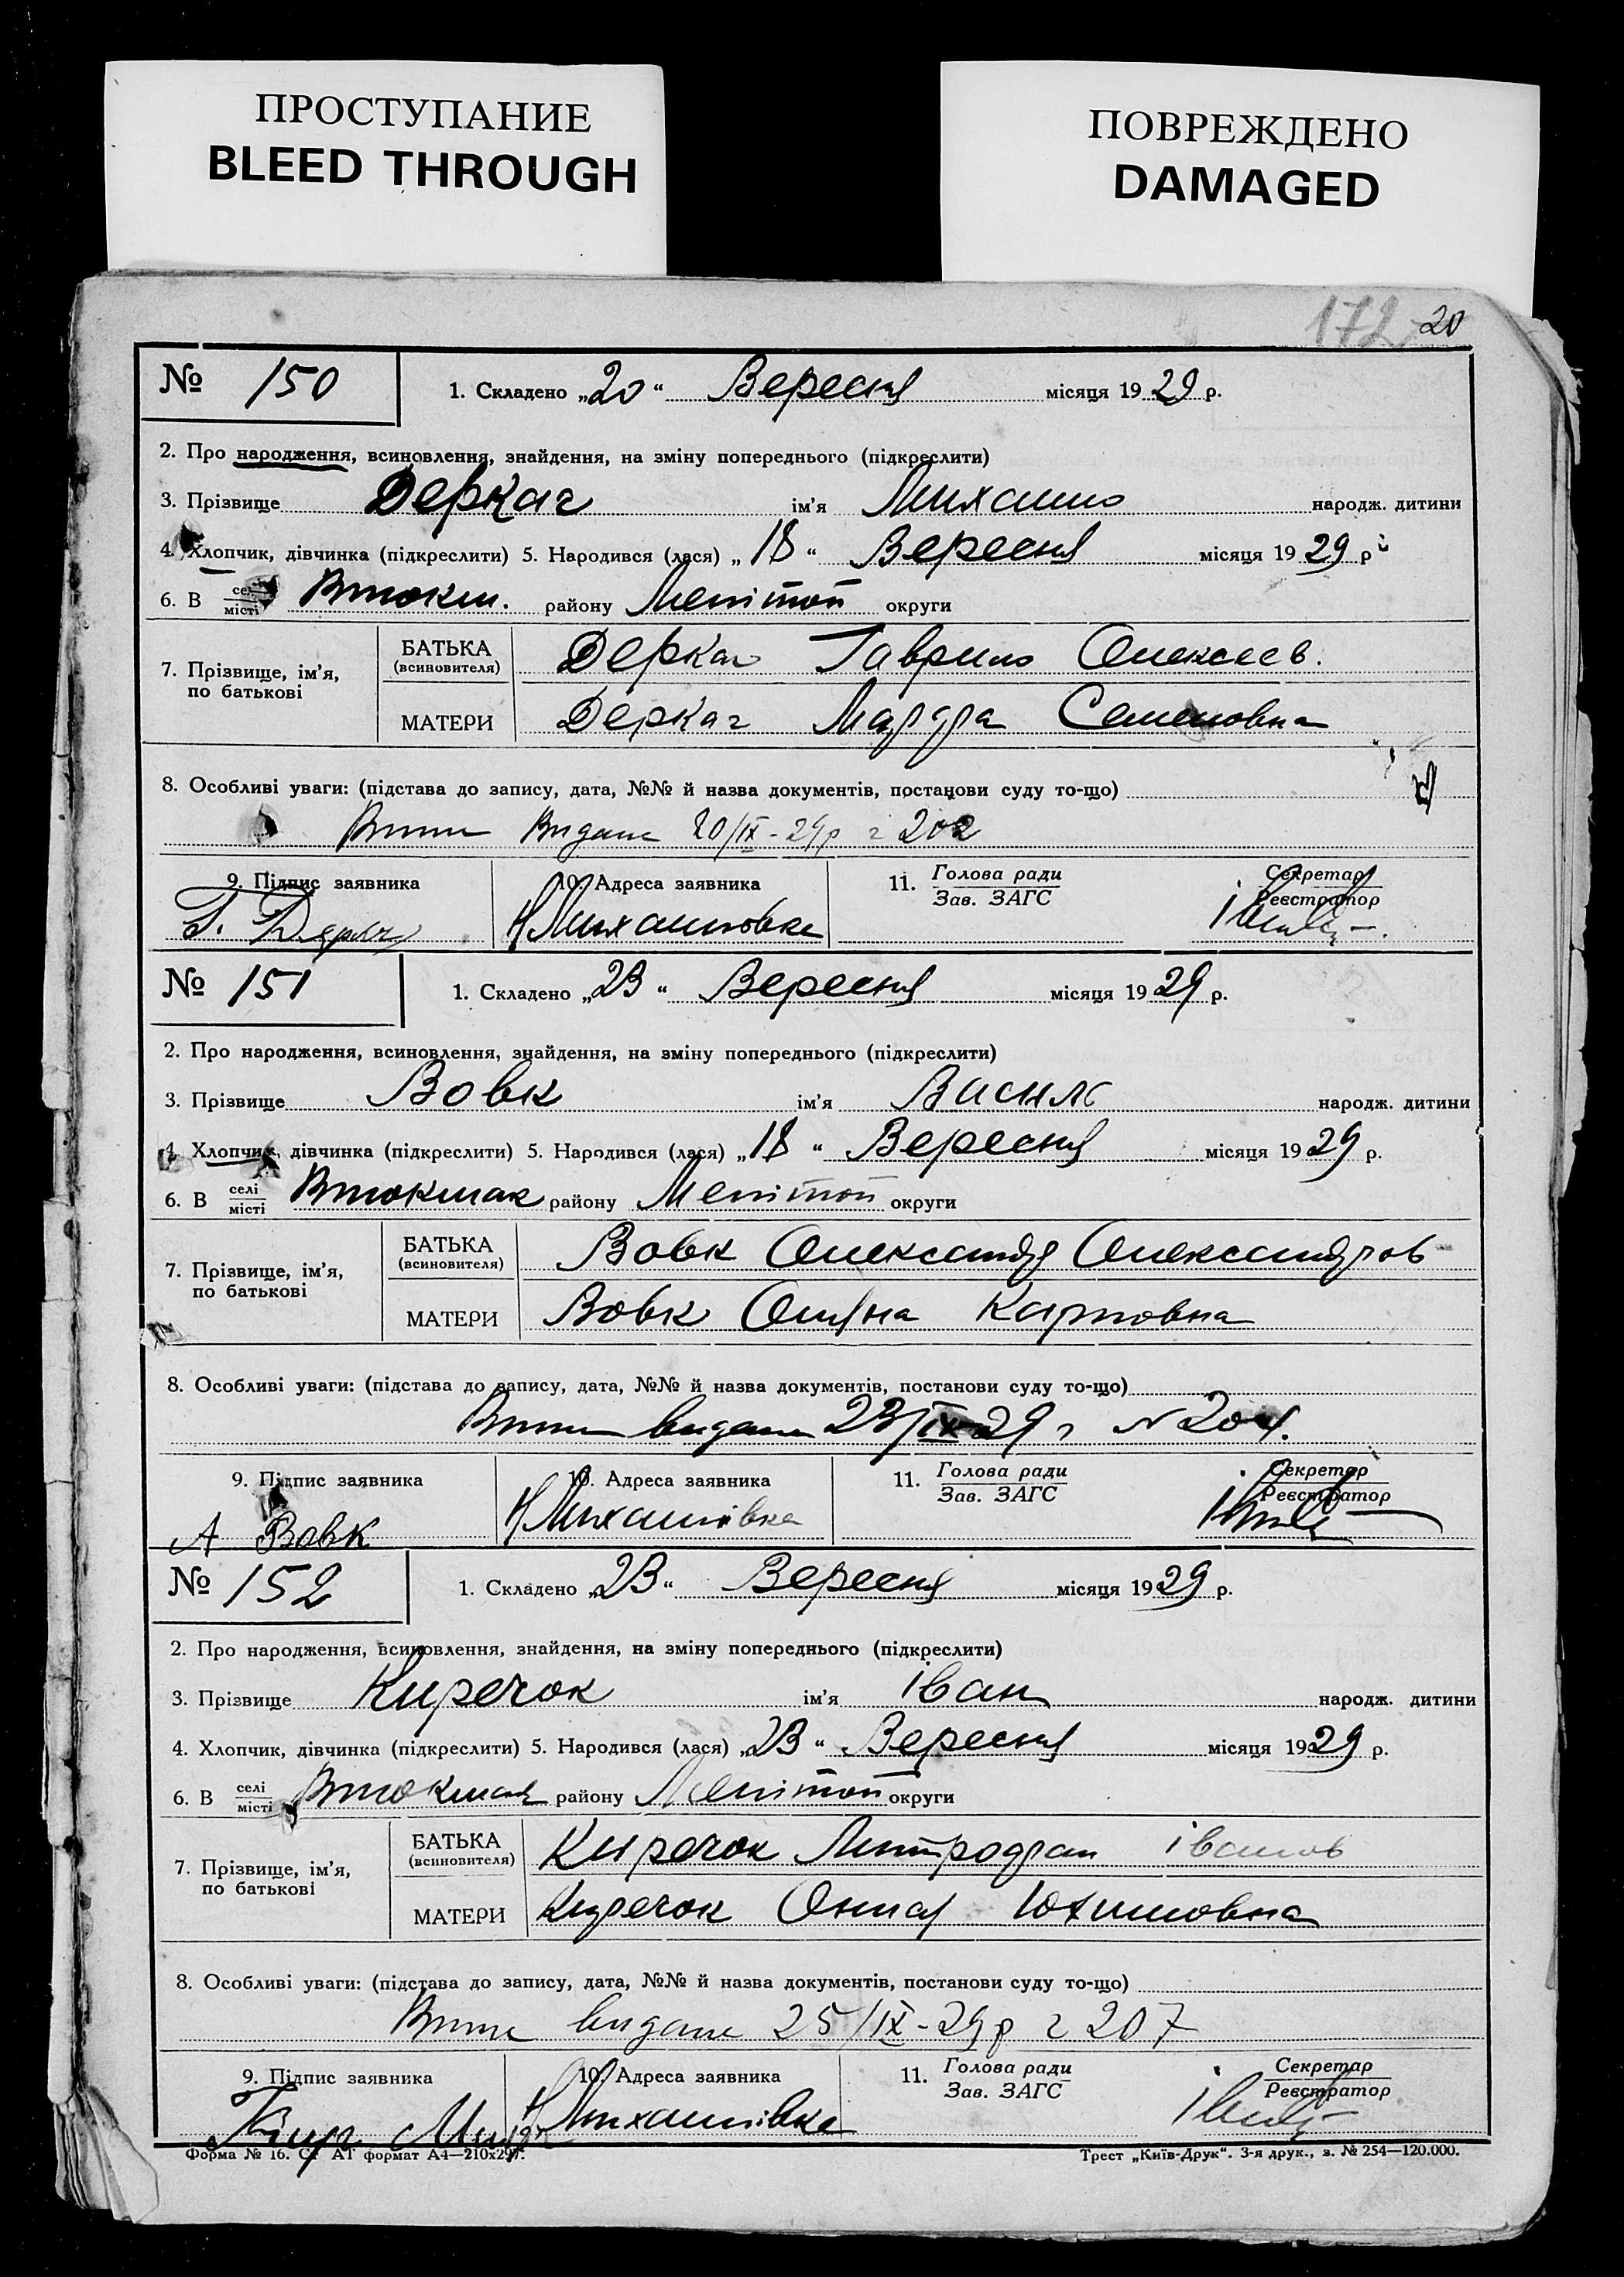 ПРОСТУПАНИЕ
BLEED THROUGH
ПОВРЕЖДЕНО
DAMAGED
172 20
№ 150 1. Складено „20“ Вересня місяця 1929 р.
2. Про народження, всиновлення, знайдення, на зміну попереднього (підкреслити)
3. Прізвище Деркач ім'я Михайло народж. дитини
4. Хлопчик, дівчинка (підкреслити) 5. Народився (лася) „18“ Вересня місяця 1929 р
6. В селі місті Втокм. району Мелітоп округи
7. Прізвище, ім'я, по батькові БАТЬКА (всиновителя) Деркач Гаврило Олексеев.
МАТЕРИ Деркач Марфа Семеновна
8. Особливі уваги: (підстава до запису, дата, №№ й назва документів, постанови суду то-що)
Видане 20/IX-29р 202
9. Підпис заявника 10. Адреса заявника 11. Голова ради Зав. ЗАГС Секретар Реєстратор
Г. Н Михайловка
№ 151 1. Складено „23“ Вересня місяця 1929 р.
2. Про народження, всиновлення, знайдення, на зміну попереднього (підкреслити)
3. Прізвище Вовк ім'я Василь народж. дитини
4. Хлопчик, дівчинка (підкреслити) 5. Народився (лася) „18“ Вересня місяця 1929 р.
6. В селі місті Втокмак району Мелітоп округи
7. Прізвище, ім'я, по батькові БАТЬКА (всиновителя) Вовк Олександр Олександров
МАТЕРИ Вовк Карповна
8. Особливі уваги: (підстава до запису, дата, №№ й назва документів, постанови суду то-що)
видане 23/IX-29 N 204.
9. Підпис заявника 10. Адреса заявника 11. Голова ради Зав. ЗАГС Секретар Реєстратор
А Вовк Н Михайлівка
№ 152 1. Складено „23“ Вересня місяця 1929 р.
2. Про народження, всиновлення, знайдення, на зміну попереднього (підкреслити)
3. Прізвище Киречок ім'я Іван народж. дитини
4. Хлопчик, дівчинка (підкреслити) 5. Народився (лася) „23“ Вересня місяця 1929 р.
6. В селі місті Втокмак району Мелітоп округи
7. Прізвище, ім'я, по батькові БАТЬКА (всиновителя) Киречок Митрофан Іванов
МАТЕРИ Киречок Юхимовна
8. Особливі уваги: (підстава до запису, дата, №№ й назва документів, постанови суду то-що)
видане 25/IX-29р 207
9. Підпис заявника 10. Адреса заявника 11. Голова ради Зав. ЗАГС Секретар Реєстратор
Н Михайлівка
Форма № 16. Ст АТ формат А4—210х297. Трест „Київ-Друк“. 3-я друк., з. № 254—120.000.